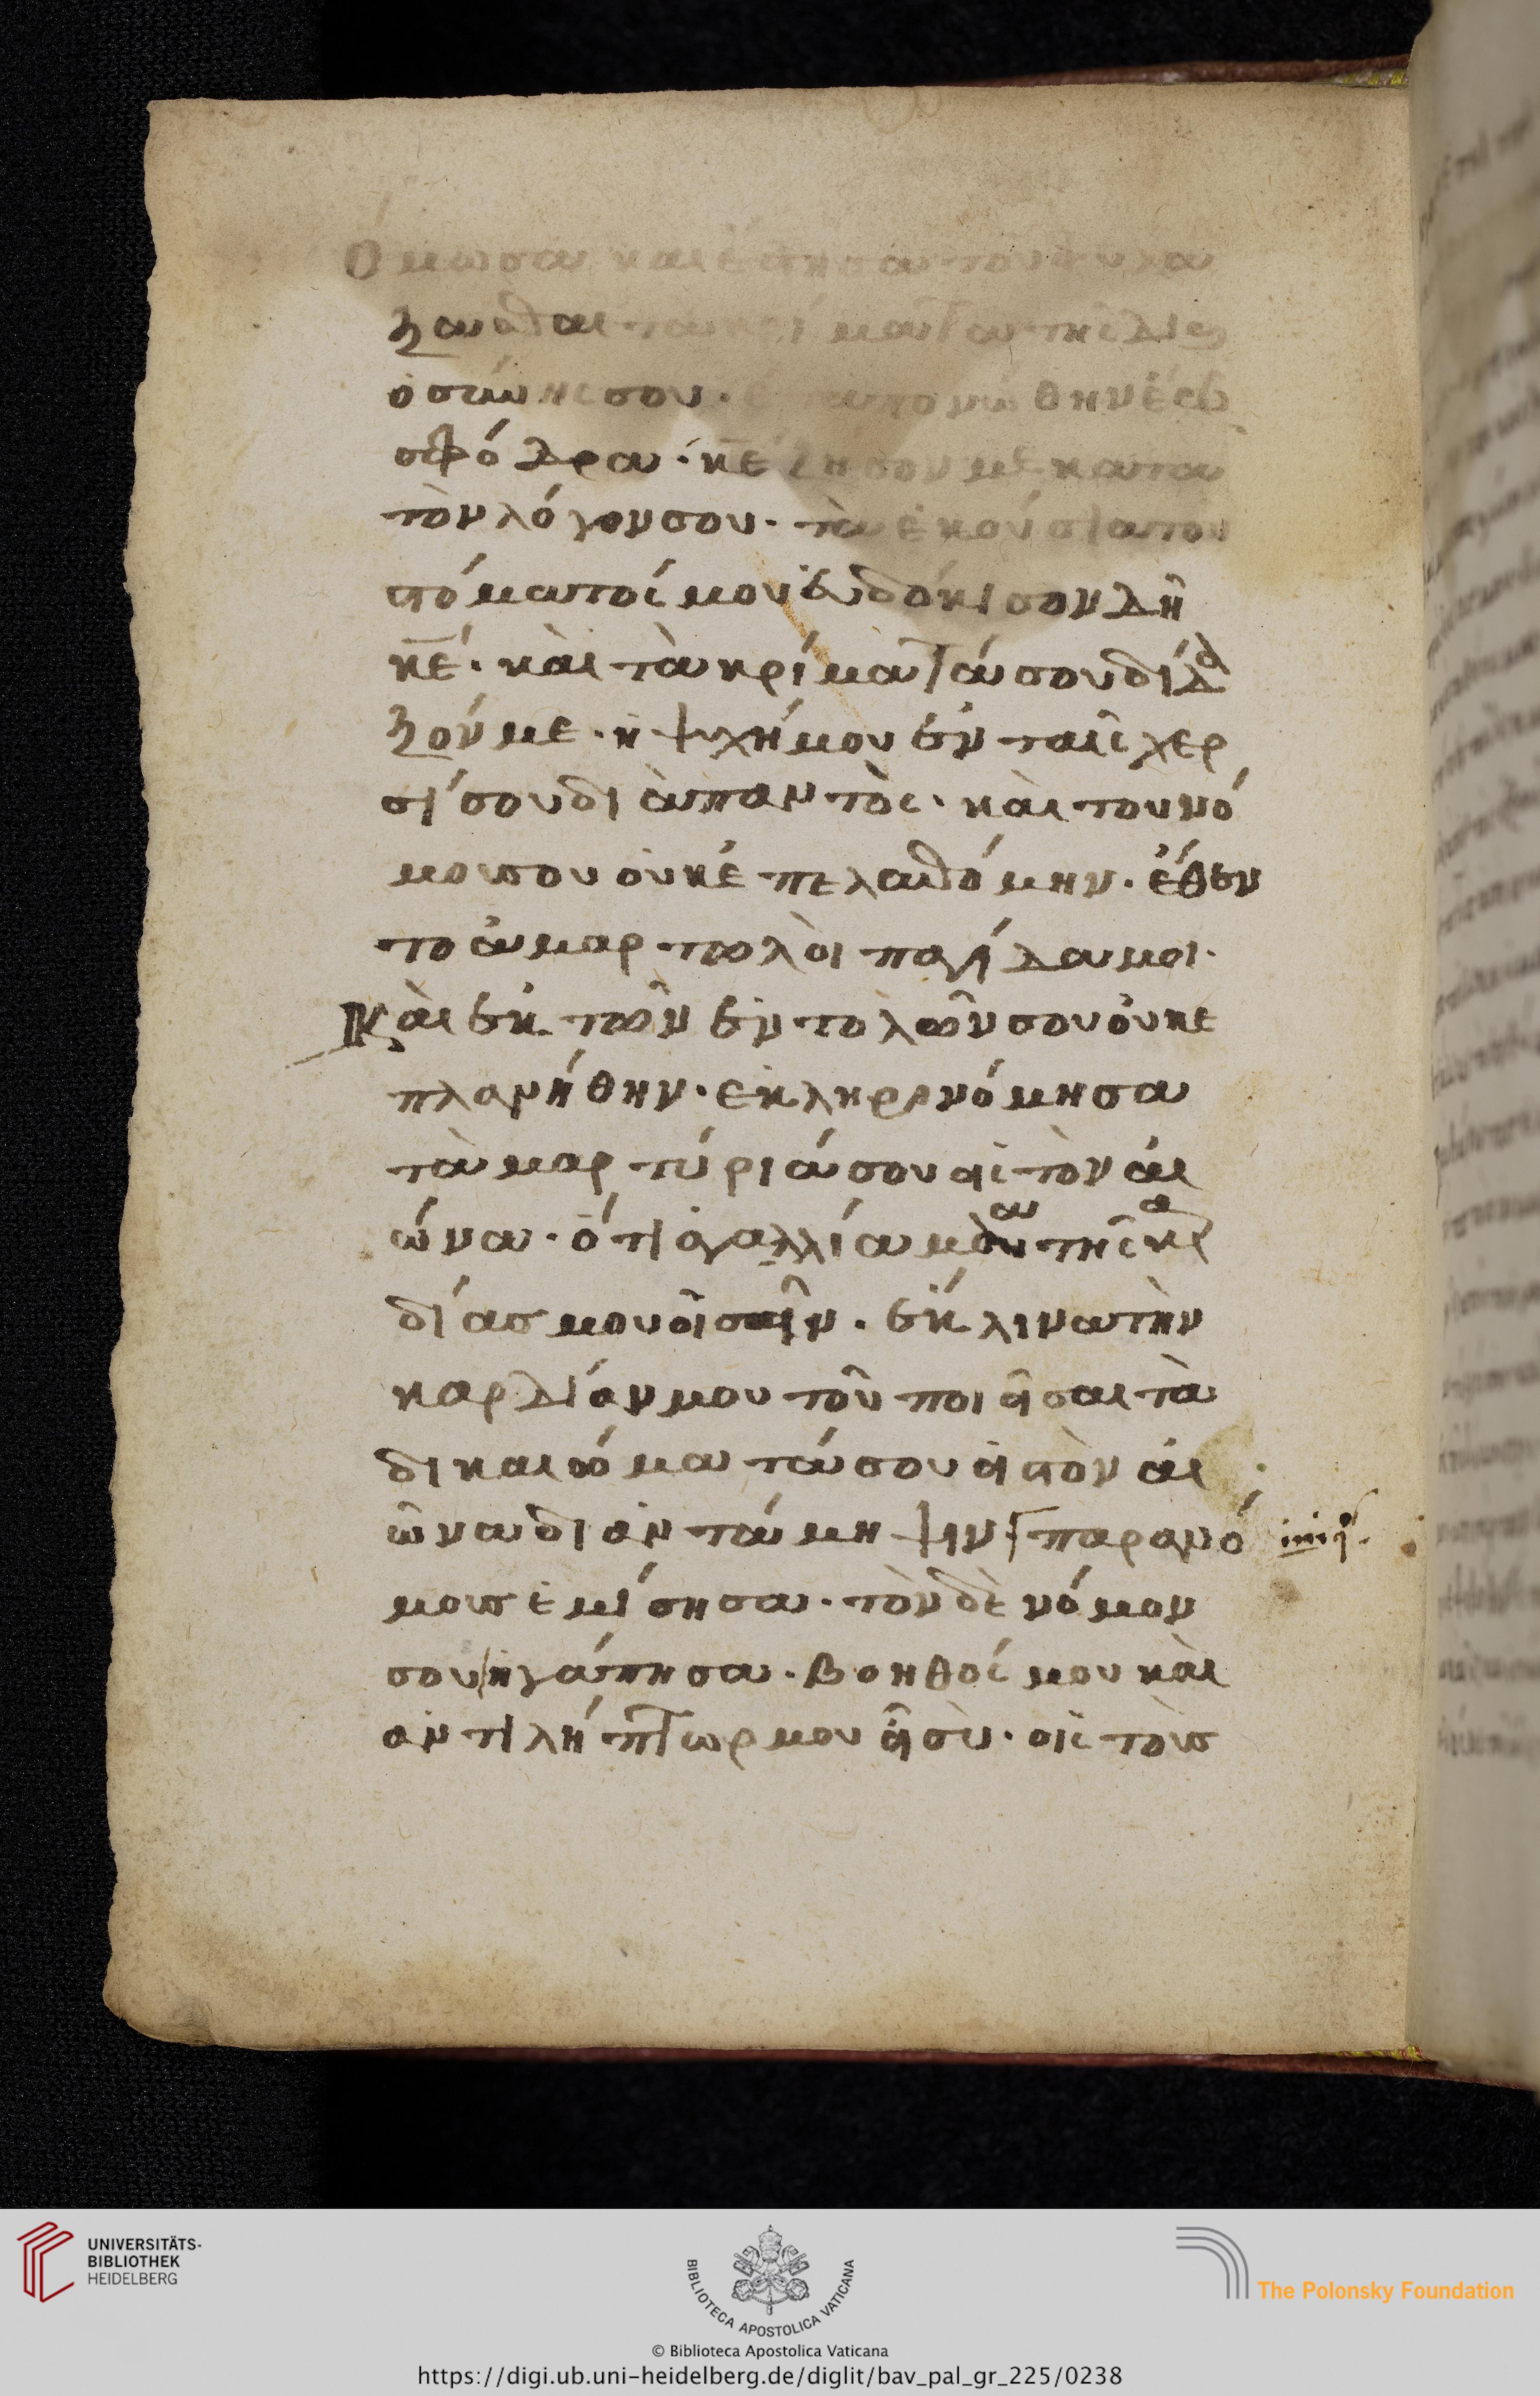 Ὀμωσα καὶ ἔστησα τοῦ φυλα
ξασθαι τὰ κρίματα τῆς δικαι
οσύνης σου· ἐταπονώθην ἕως
σφόδρα· κ̅ε̅ ζησον με κατὰ
τὸν λόγον σου· τὰ ἑκούσια του
στόματοσ μου ἐυδόκισον δὴ
κ̅ε̅· καὶ τὰ κρίματά σου δίδα
ξόν με· ἡ ψυχή μου ἐν ταῖς χερ
σί σου διὰπαντὸς· καὶ του νό
μου σου οὐκ ἐπελαθόμην· ἔθεν
το ἁμαρτωλοὶ παγίδα μοι·
Καὶ ἐκ τῶν ἐντολῶν σου οὐκ ἐ
πλανήθην· ἐκληρονόμησα
τὰ μαρτύριά σου εἰς τὸν αἰ
ώνα· ὅτι ἀγαλλίαμα τῆς καρ
δίας μου εἰσὶν· ἔκλινα τὴν
καρδίαν μου τοῦ ποιῆσαι τὰ
δικαιώματά σου εἰς τὸν αἰ
ῶνα δι ἀντάμηψιν παρανό
μους ἐμίσησα· τὸν δὲ νόμον
σου ἠγάπησα· βοηθός μου καὶ
ἀντιλήπτωρ μου εἶ σὺ· εἰς τοὺς
UNIVERSITÄTS-
BIBLIOTHEK
HEIDELBERG
BIBLIOTECA APOSTOLICA VATICANA
The Polonsky Foundation
© Biblioteca Apostolica Vaticana
https://digi.ub.uni-heidelberg.de/diglit/bav_pal_gr_225/0238